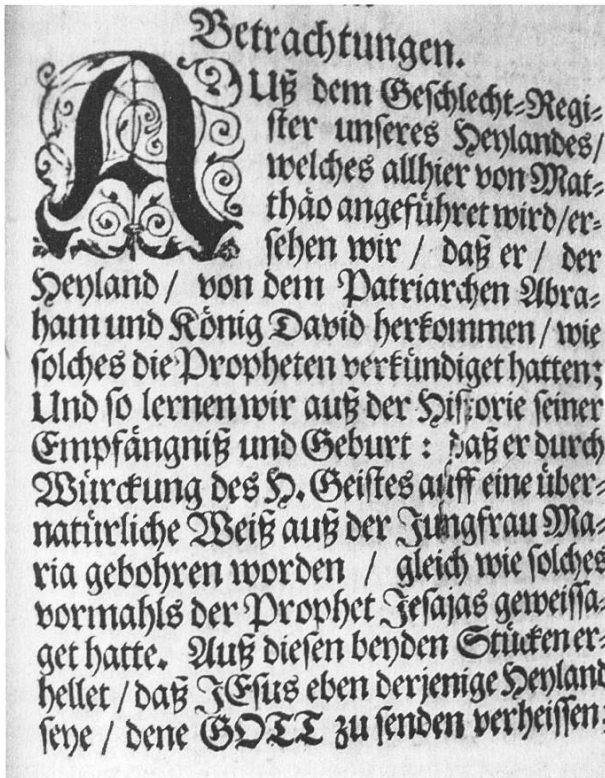 Betrachtungen.
AUß dem Geschlecht-Regi-
ster unseres Heylandes/
welches allhier von Mat-
thäo angeführet wird/er-
sehen wir / daß er / der
Heyland / von dem Patriarchen Abra-
ham und König David herkommen / wie
solches die Propheten verkündiget hatten;
Und so lernen wir auß der Historie seiner
Empfängniß und Geburt : daß er durch
Würckung des H. Geistes auff eine über-
natürliche Weiß auß der Jungfrau Ma-
ria gebohren worden / gleich wie solches
vormahls der Prophet Jesajas geweissa-
get hatte. Auß diesen beyden Stücken er-
hellet / daß JEsus eben derjenige Heyland
seye / dene GOTT zu senden verheissen;